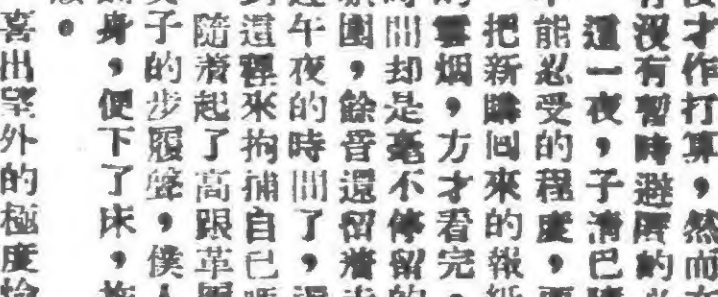 才作打算，然而
沒有暫時避居的
這一夜，子清已
能忍受的程度，
把新購回來的報紙
雲烟，方才看完，
間却是毫不停留的
園，餘音還留着
午夜的時間了，還
這裡來拘捕自己嗎
隨着起了高跟革履
子的步履聲，僕人
身，便下了床，
。
喜出望外的極度愉